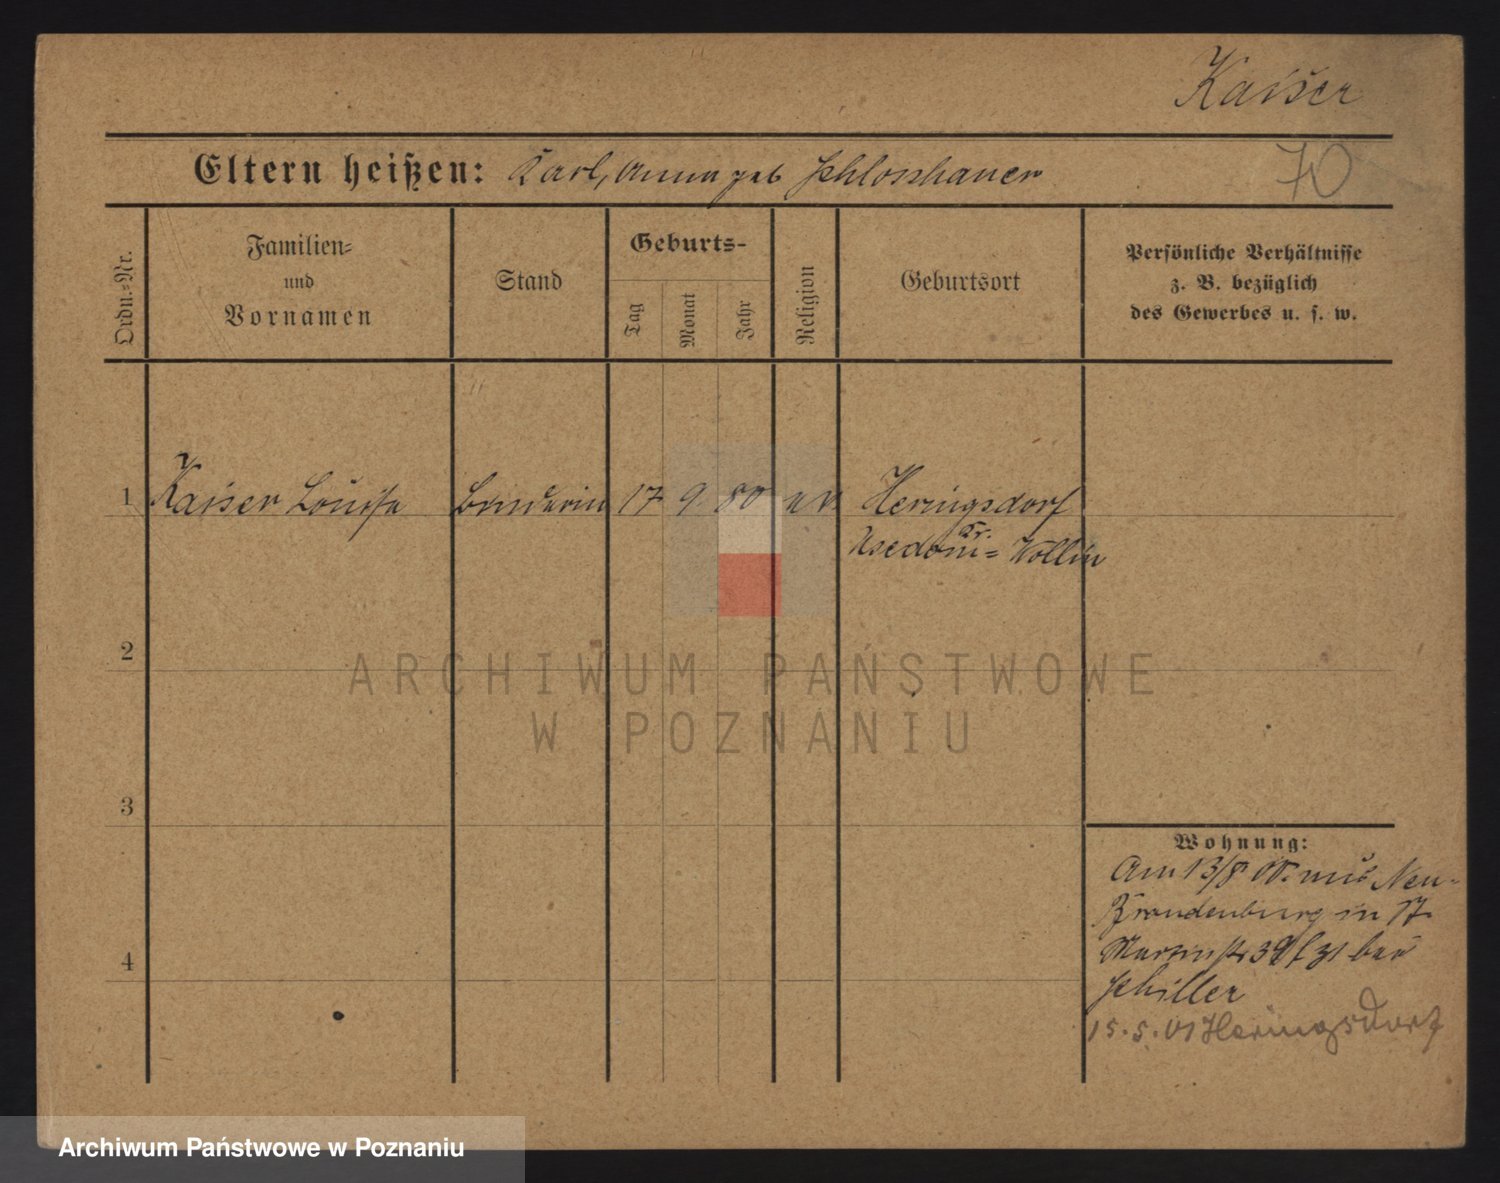 Kaiser
Eltern heißen: Karl, Anna geb Schlosshauer
70
Ordn.=Nr.
Familien=
und
Vornamen
Stand
Geburts-
Tag
Monat
Jahr
Religion
Geburtsort
Persönliche Verhältnisse
z. B. bezüglich
des Gewerbes u. s. w.
1 Kaiser Louise Binderin 17 9 80 ev. Heringsdorf
Kr.
Usedom= Wollin
2
3
4
Wohnung:
Am 13/8 00. aus Neu-
Brandenburg in St.
Martinstr 39 bei
Schiller
15.5.01 Heringsdorf
ARCHIWUM PAŃSTWOWE
W POZNANIU
Archiwum Państwowe w Poznaniu